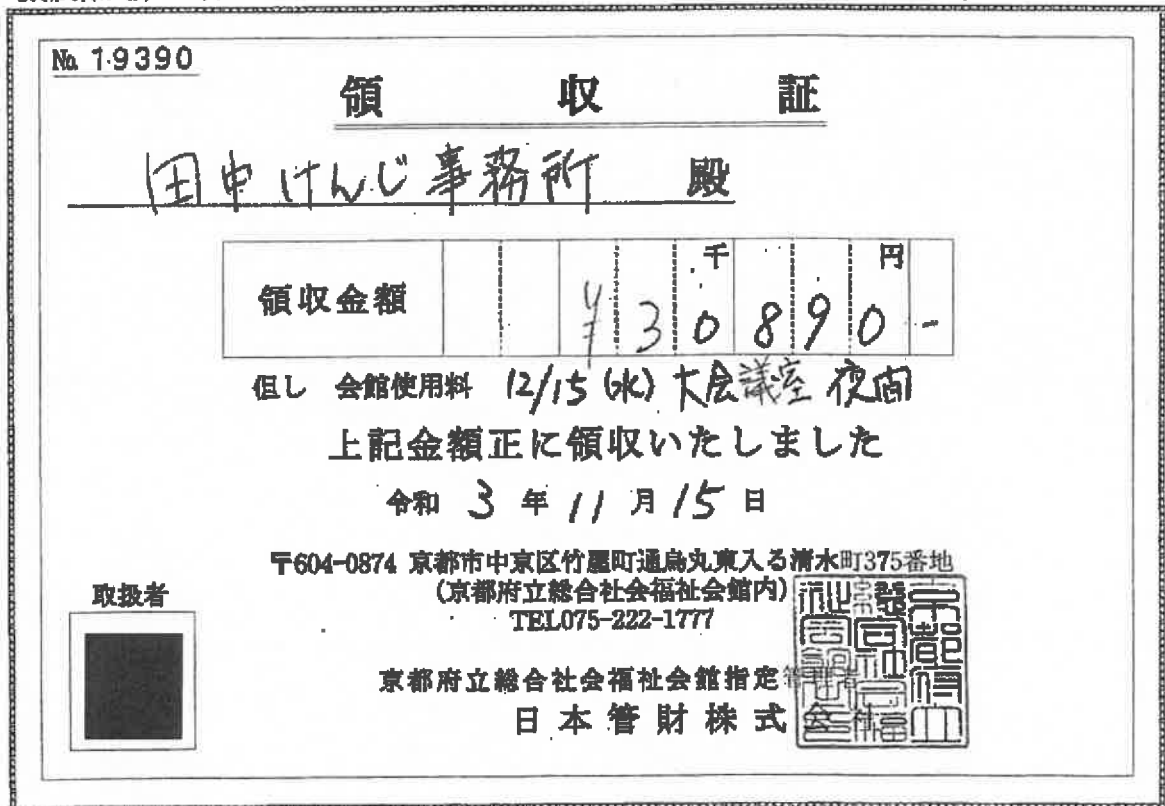 № 19390
領収証
田中けんじ事務所 殿
領収金額 ¥30千890円-
但し 会館使用料 12/15(水) 大会議室 夜間
上記金額正に領収いたしました
令和 3 年 11 月 15 日
〒604-0874 京都市中京区竹屋町通烏丸東入る清水町375番地
(京都府立総合社会福祉会館内)
TEL075-222-1777
取扱者
京都府立総合社会福祉会館指定管理者
日本管財株式会社